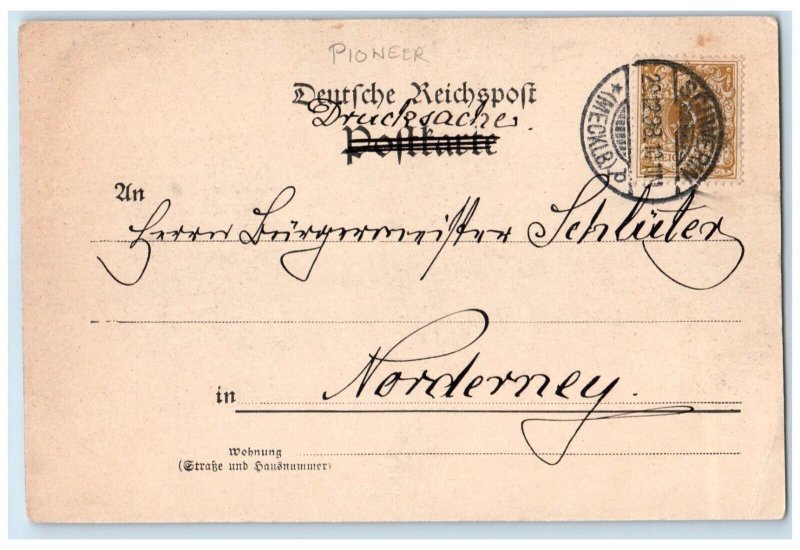 PIONEER
Deutsche Reichspost
Drucksache.
Postkarte
An
Herrn Bürgermeister Schlüter
in Norderney.
Wohnung
(Straße und Hausnummer)
SCHWERIN
(MECKLB)